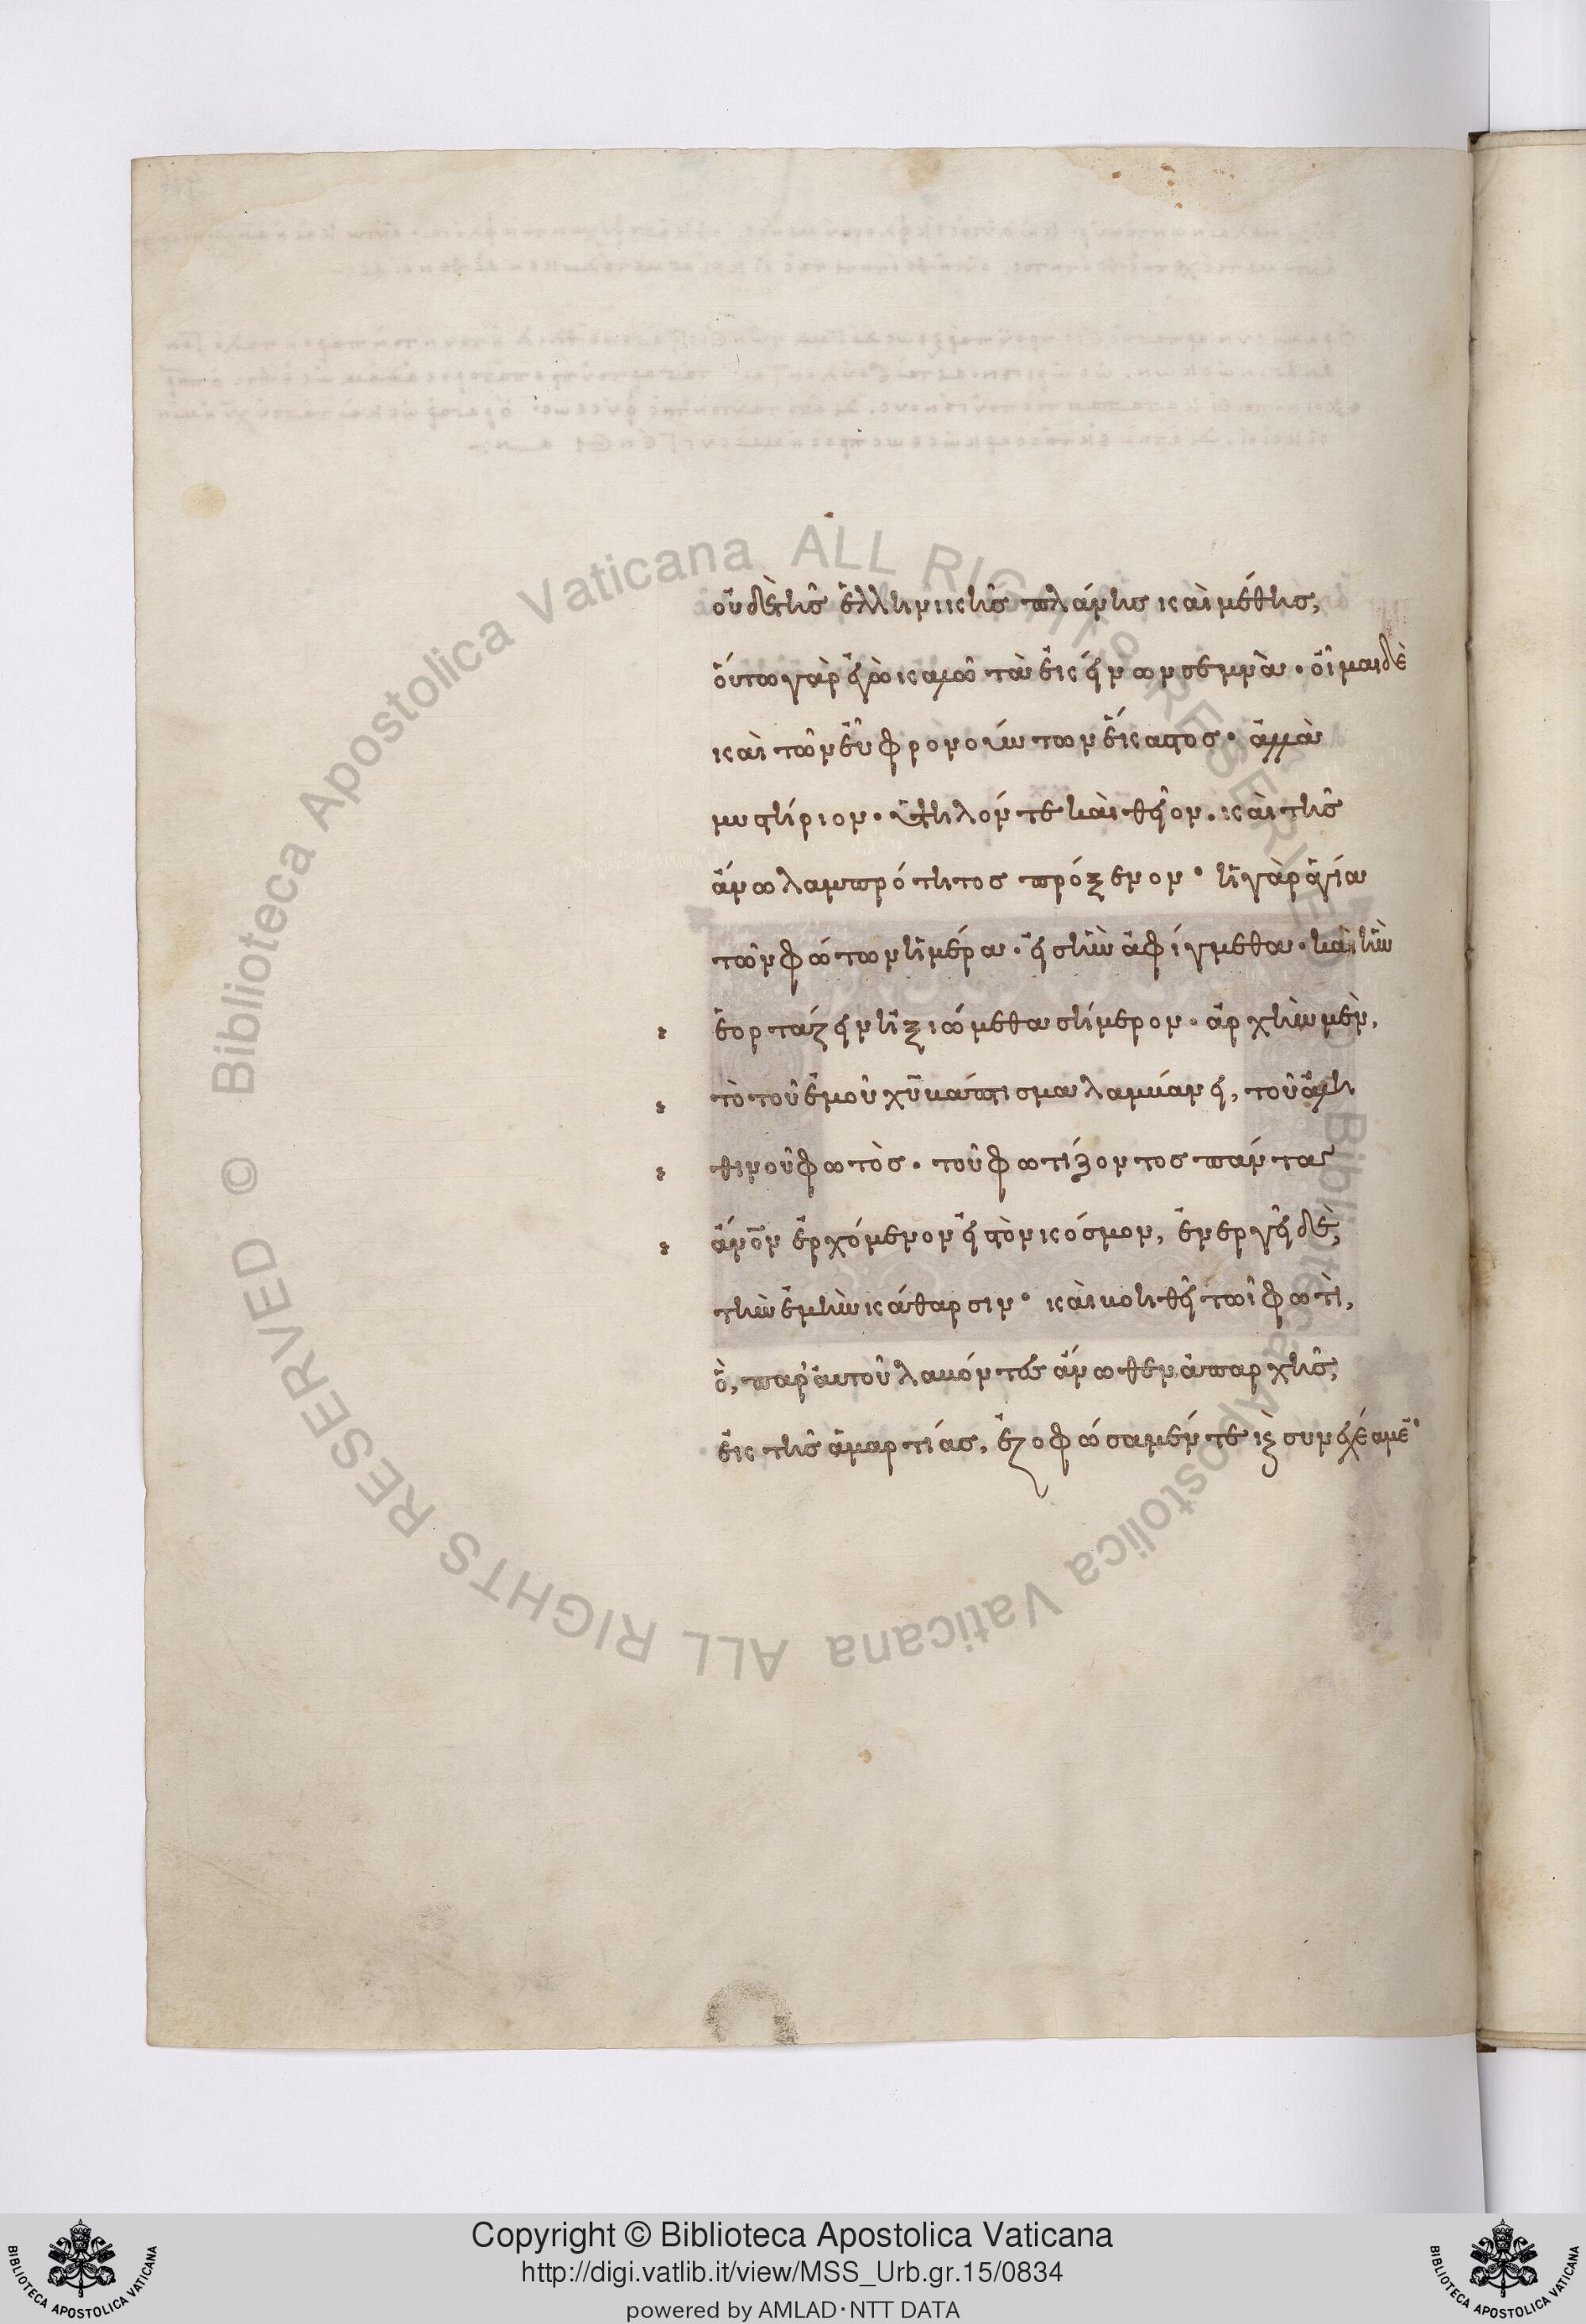 οὐδὲ τῆς ἑλληνικῆς πλάνης καὶ μέθης,
οὕτω γὰρ ἐγὼ καλῶ τὰ ἐκείνων σεμνὰ · οἶμαι δὲ
καὶ τῶν εὖ φρονούντων ἕκαστος · ἀλλὰ
μυστήριον · ὑψηλόν τε καὶ θεῖον · καὶ τῆς
ἄνω λαμπρότητος πρόξενον · ἡ γὰρ ἁγία
τῶν φώτων ἡμέρα · εἰς ἣν ἀφίγμεθα · καὶ ἣν
ἑορτάζειν ἠξιώμεθα σήμερον · ἀρχὴν μὲν,
τὸ τοῦ ἐμοῦ χῦ βάπτισμα λαμβάνει, τοῦ ἀλη
θινοῦ φωτὸς · τοῦ φωτίζοντος πάντα
ἄνον ἐρχόμενον εἰς τὸν κόσμον, ἐνεργεῖ δὲ,
τὴν ἐμὴν κάθαρσιν · καὶ βοηθεῖ τῶι φωτὶ,
ὃ, παρ' αὐτοῦ λαβόντες ἄνωθεν ἀπαρχῆς,
ἐκ τῆς ἁμαρτίας, ἐζοφώσαμέν τε κ συνεχέαμε
Copyright © Biblioteca Apostolica Vaticana
http://digi.vatlib.it/view/MSS_Urb.gr.15/0834
powered by AMLAD·NTT DATA
Biblioteca Apostolica Vaticana ALL RIGHTS RESERVED © Biblioteca Apostolica Vaticana ALL RIGHTS RESERVED ©
BIBLIOTECA APOSTOLICA VATICANA
BIBLIOTECA APOSTOLICA VATICANA